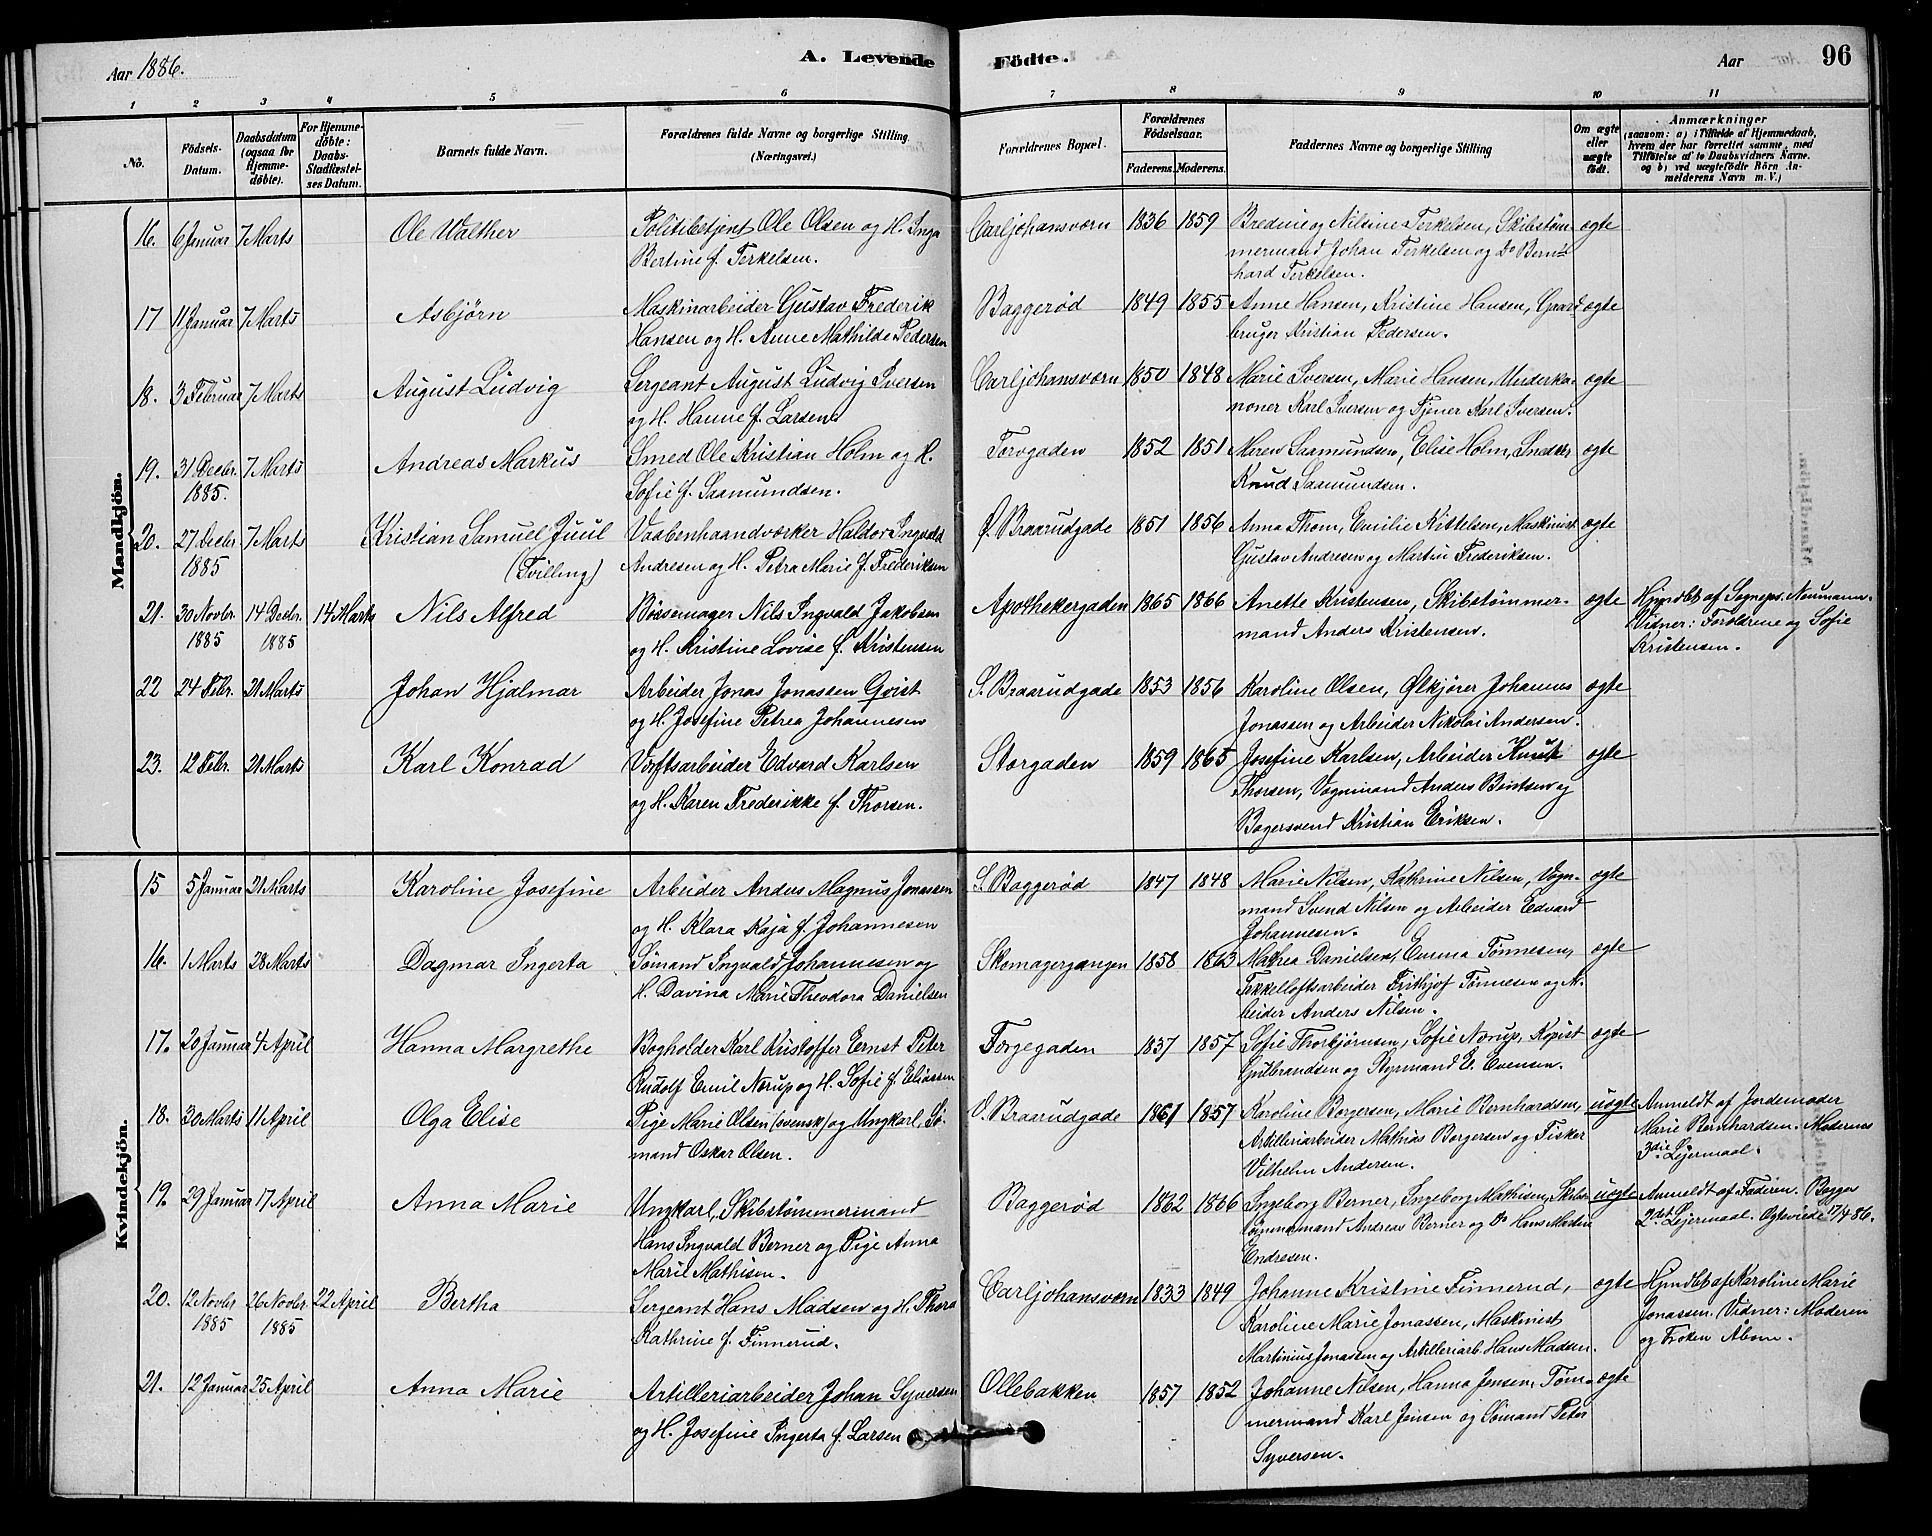 Aar 1886.
A. Levende
Födte.
Aar
96
1 2 3 4 5 6 7 8 9 10 11
No.
Födsels-
Datum.
Daabsdatum
(ogsaa for
Hjemme-
døbte).
For Hjemme-
døbte:
Daabs-
Stadfæstel-
ses Datum.
Barnets fulde Navn.
Forældrenes fulde Navne og borgerlige Stilling.
(Næringsvei.)
Forældrenes Bopæl.
Forældrenes
Födselsaar.
Faderens. Moderens.
Faddernes Navne og borgerlige Stilling
Om ægte
eller
uægte
født.
Anmærkninger
(saasom: a) i Tilfælde af Hjemmedaab,
hvem der har forrettet samme, med
Tilføielse af to Daabsvidners Navne.
og b) ved uægtefødte Börn An-
melderens Navn m. V.)
Mandkjön.
16. 6 Januar 7 Marts Ole Walther
Politibetjent Ole Olsen og H. Inga
Bertine f. Terkelsen.
Carljohansværn 1836 1859
Bredine og Nilsine Terkelsen, Skibstøm-
mermand Johan Terkelsen og Do Bern-
hard Terkelsen.
ægte
17 11 Januar 7 Marts Asbjörn
Maskinarbeider Gustav Frederik
Hansen og H. Anne Mathilde Pedersen
Baggerød 1849 1855
Anne Hansen, Kristine Hansen, Gaard-
bruger Kristian Pedersen.
ægte
18. 3 Februar 7 Marts August Ludvig
Sergeant August Ludvig Iversen
og H. Hanne f. Larsen
Carljohansværn 1850 1848
Marie Iversen, Marie Hansen, Underka-
noner Karl Iversen og Tjener Karl Iversen.
ægte
19. 31 Decbr. 7 Marts Andreas Markus
1885.
Smed Ole Kristian Holm og H.
Sofie f. Saamundsen.
Torvgaden 1852 1851
Maren Saamundsen, Elise Holm, Snedker
Knud Saamundsen.
ægte
20. 27 Decbr 7 Marts Kristian Samuel Juul
1885 (Tvilling)
Vaabenhaandværker Haldor Ingvald
Andresen og H. Petra Marie f. Frederiksen
Ø. Braarudgade 1851 1856
Anna Thom, Emilie Kittelsen, Maskinist
Gustav Andresen og Martin Frederiksen.
ægte
21. 30 Novbr. 14 Decbr. 14 Marts Nils Alfred
1885 1885
Bøssemager Nils Ingvald Jakobsen
og H. Kristine Lovise f. Kristensen
Apothekergaden 1865 1866
Anette Kristensen, Skibstømmer-
mand Anders Kristensen.
ægte
Hjmdbt af Sognepr. Neumann.
Vidner: Forældrene og Sofie
Kristensen.
22 24 Febr. 21 Marts Johan Hjalmar
Arbeider Jonas Jonassen Qvist
og H. Josefine Petrea Johannesen
S. Braarudgade 1853 1856
Karoline Olsen, Ølkjører Johannes
Jonassen og Arbeider Nikolai Andersen.
ægte
23. 12 Febr. 21 Marts Karl Konrad
Værftsarbeider Edvard Karlsen
og H. Karen Frederikke f. Thorsen.
Storgaden 1859 1865
Josefine Karlsen, Arbeider Knut
Thorsen, Vognmand Anders Bentsen og
Bagersvend Kristian Eriksen.
ægte
Kvindekjön.
15 5 Januar 21 Marts Karoline Josefine
Arbeider Anders Magnus Jonassen
og H. Klara Kaja f. Johannesen
S. Baggerød 1847 1848
Marie Nilsen, Kathrine Nilsen, Vogn-
mand Svend Nilsen og Arbeider Edvard
Johannesen.
ægte
16. 1 Marts 28 Marts Dagmar Ingerta
Sømand Ingvald Johannesen og
H. Davina Marie Theodora Danielsen
Skomagergangen 1858 1863
Mathea Danielsen, Emma Tønnesen,
Takkelloftsarbeider Frithjof Tønnesen og Ar-
beider Anders Nilsen.
ægte
17. 20 Januar 4 April Hanna Margrethe
Bogholder Karl Kristoffer Ernst Peter
Rudolf Emil Nørup og H. Sofie f. Eliassen
Torgegaden 1837 1857
Sofie Thorbjørnsen, Sofie Nørup, Kopist
Gulbrandsen og Styrmand E. Evensen.
ægte
18. 30 Marts 11 April Olga Elise
Pige Marie Olsen (svensk) og Ungkarl, Sø-
mand Oskar Olsen.
V. Braarudgade 1861 1857
Karoline Borgersen, Marie Bernhardsen,
Artilleriarbeider Mathias Borgersen og Fisker
Vilhelm Andersen.
uægte
Anmeldt af Jordemoder
Marie Bernhardsen. Moderens
3die Lejermaal.
19. 29 Januar 17 April Anna Marie
Ungkarl, Skibstømmermand
Hans Ingvald Berner og Pige Anna
Marie Mathisen.
Baggerød 1862 1866
Ingeborg Berner, Ingeborg Mathisen, Skibs-
tømmermand Andreas Berner og Do Hans Martin
Endresen.
uægte
Anmeldt af Faderen. Begges
2det Lejermaal. Ægteviede 17/4 86.
20. 12 Novbr 26 Novbr. 22 April Bertha
1885 1885
Sergeant Hans Madsen og H. Thora
Kathrine f. Finnerud.
Carljohansværn 1833 1849
Johanne Kristine Finnerud,
Karoline Marie Jonassen, Maskinist
Martinius Jonassen og Artilleriarb. Hans Madsen.
ægte
Hjmdbt af Karoline Marie
Jonassen. Vidner: Moderen
og Frøken Åbom.
21. 12 Januar 25 April Anna Marie
Artilleriarbeider Johan Syversen
og H. Josefine Ingerta f. Larsen
Ollebakken 1857 1852
Johanne Nilsen, Hanna Jensen, Tøm-
mermand Karl Jensen og Sømand Peter
Syversen.
ægte